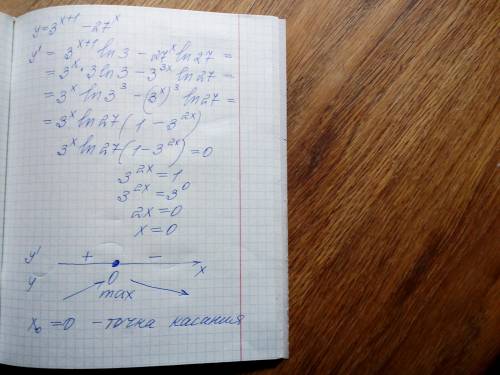 y = 3^(x+1) - 27^x
y' = 3^(x+1) ln 3 - 27^x ln 27 =
= 3^x · 3 ln 3 - 3^(3x) ln 27 =
= 3^x ln 3^3 - (3^x)^3 ln 27 =
= 3^x ln 27 (1 - 3^(2x))
3^x ln 27 (1 - 3^(2x)) = 0
3^(2x) = 1
3^(2x) = 3^0
2x = 0
x = 0
y' + - x
y 0
max
x₀ = 0 - точка касания